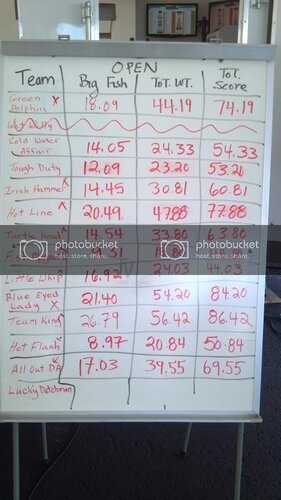 OPEN
Team Big Fish Tot. Wt. Tot. Score
Green Dolphin X 18.09 44.19 74.19
Cold Water Affair 14.05 24.33 54.33
Tough Duty 12.09 23.20 53.20
Irish Hammer 14.45 30.81 60.81
Hot Line 20.49 47.88 77.88
Turtle Head 14.54 33.80 63.80
photobucket photobucket
host. store. share. host. store. share.
Little Whip 16.92 24.03 44.03
Blue Eyed Lady X 21.40 54.20 84.20
Team King 26.79 56.42 86.42
Hot Flash 8.97 20.84 50.84
All Out 17.03 39.55 69.55
Lucky Dutchman